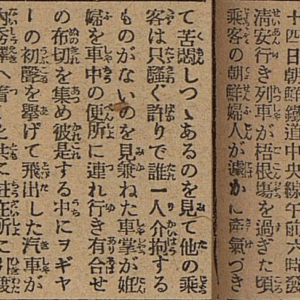 十四日朝鮮鐵道中央線午前六時發
淸安行き列車が桔梗塲を過ぎた頃
乘客の朝鮮婦人が俄かに產氣づき
て苦悶しつゝあるのを見て他の乘
客は只騷ぐ許りで誰一人介抱する
ものがないのを見兼ねた車掌が姙
婦を車中の便所に連れ行き有合せ
の布切を集め彼是する中にヲギヤ
ーの初聲を擧げて飛出した汽車が